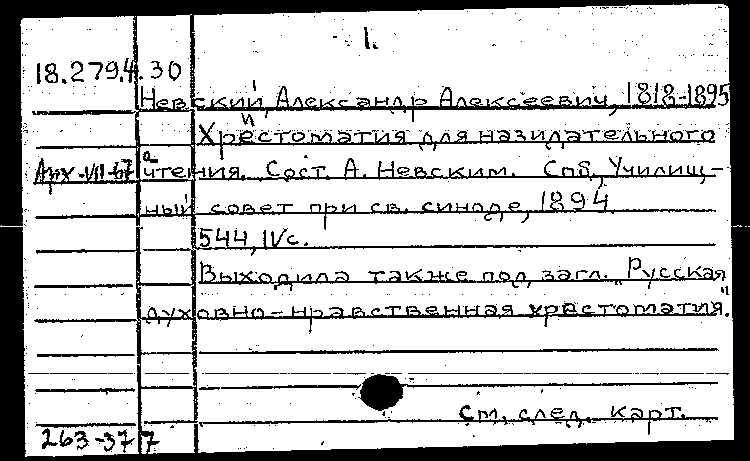 1.
18.279.4.30
Невский, Александр Алексеевич, 1818-1895
Христоматия для назидательного
Арх-VII-67 чтения. Сост. А. Невским. Спб., Училищ-
ный совет при св. синоде, 1894
544, IV с.
Выходила также под загл. "Русская
духовно-нравственная хрестоматия".
См. след. карт.
263-37 7